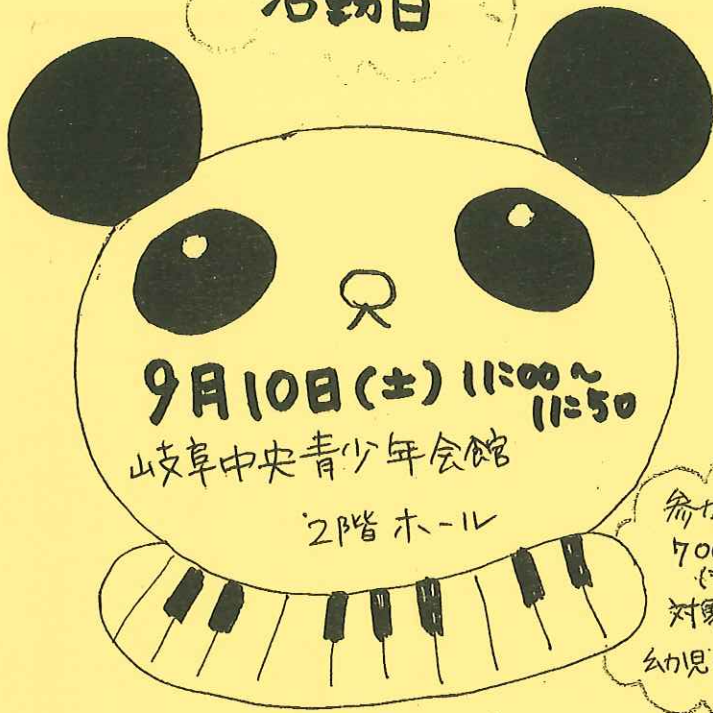 活動日
9月10日(土) 11:00~
11:50
岐阜中央青少年会館
2階 ホール
700
対象
幼児